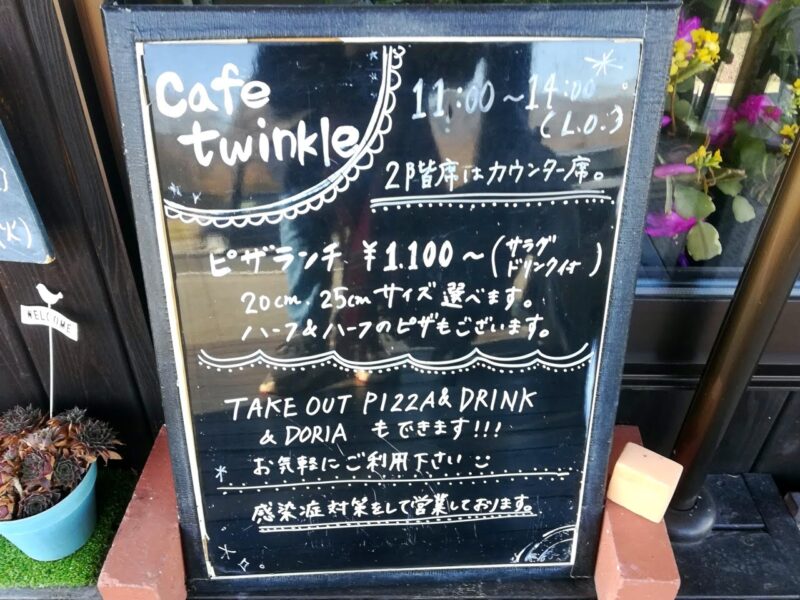 Cafe
twinkle
11:00～14:00
(L.O.)
2階席はカウンター席。
ピザランチ ¥1.100～(サラダ
ドリンク付)
20cm. 25cmサイズ選べます。
ハーフ&ハーフのピザもございます。
TAKE OUT PIZZA& DRINK
& DORIA もできます!!!
お気軽にご利用下さい
感染症対策をして営業しております。
WELCOME